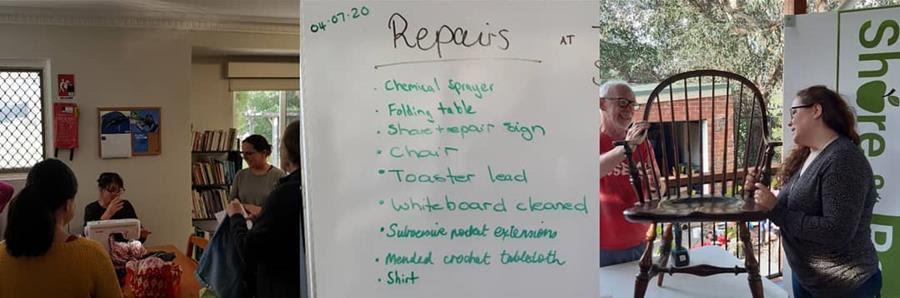 04.07.20
Repairs
AT
· Chemical Sprayer
· Folding table
· Share + repair sign
· Chair
· Toaster lead
· Whiteboard cleaned
· Subversive pocket extensions
· Mended crochet tablecloth
· Shirt
Share